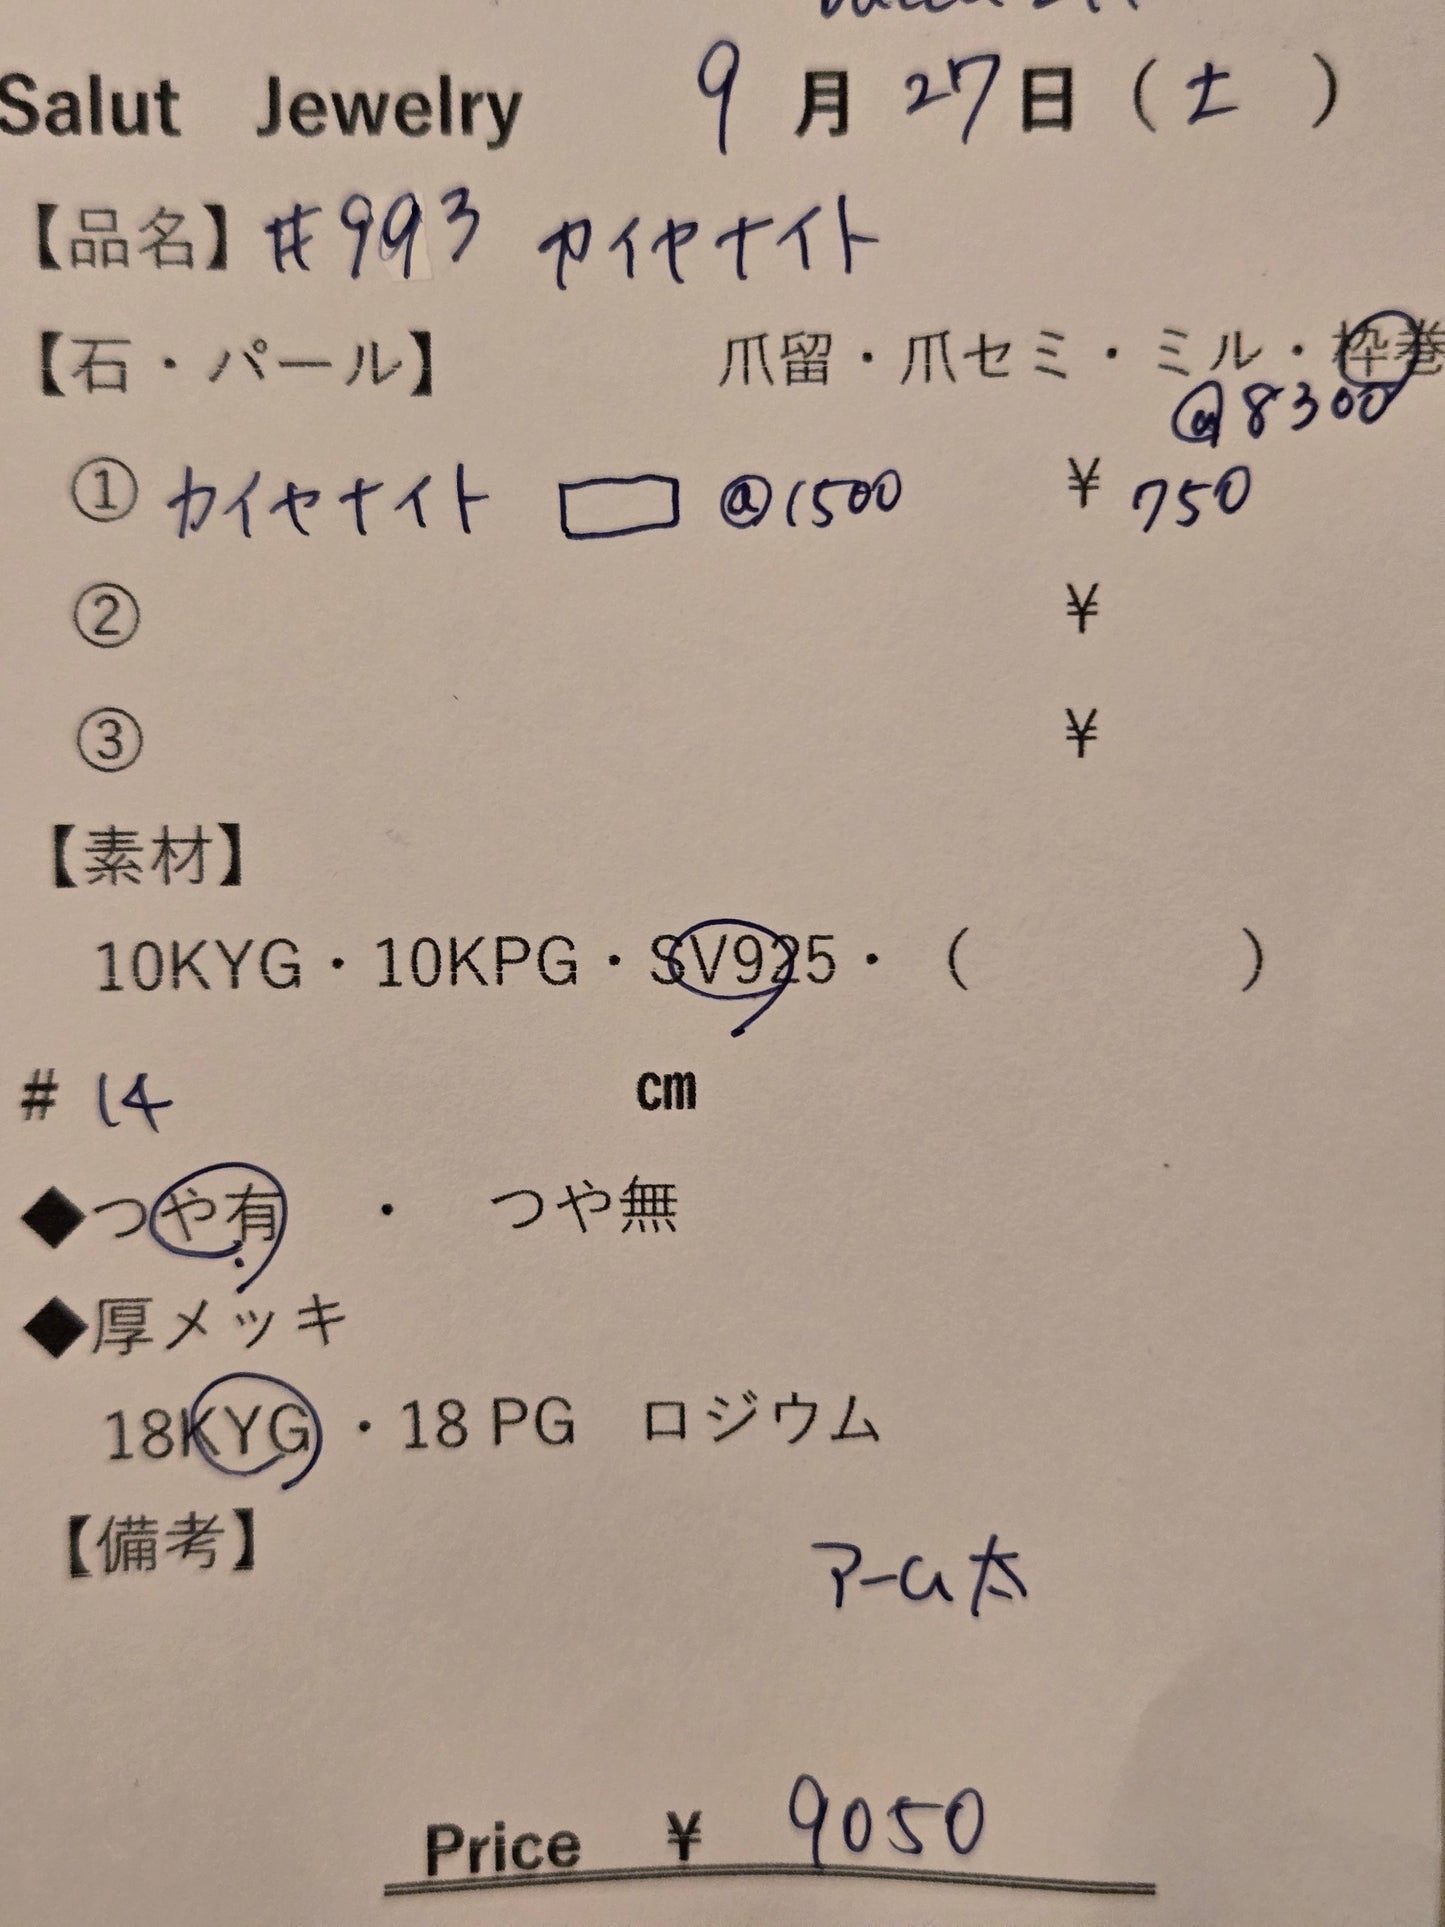 Salut Jewelry 9月27日(土)
【品名】#993 カイヤナイト
【石・パール】 爪留・爪セミ・ミル・枠巻
@8300
① カイヤナイト @1500 ¥750
② ¥
③ ¥
【素材】
10KYG・10KPG・SV925・( )
# 14 cm
◆つや有 ・ つや無
◆厚メッキ
18KYG ・18 PG ロジウム
【備考】
アーム太
Price ¥ 9050